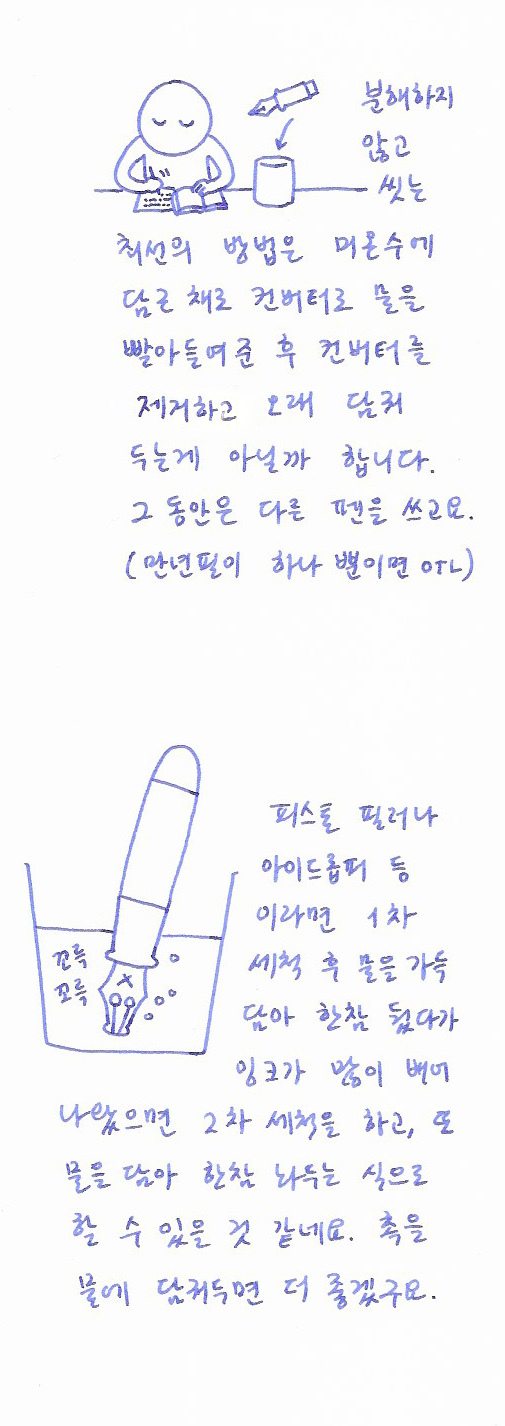 분해하지
않고
씻는
최선의 방법은 미온수에
담근 채로 컨버터로 물을
빨아들여준 후 컨버터를
제거하고 오래 담궈
두는게 아닐까 합니다.
그 동안은 다른 펜을 쓰고요.
(만년필이 하나 뿐이면 OTL)
피스톤 필러나
아이드롭퍼 등
이라면 1차
세척 후 물을 가득
담아 한참 뒀다가
잉크가 많이 빠져
나왔으면 2차 세척을 하고, 또
물을 담아 한참 놔두는 식으로
할 수 있을 것 같네요. 촉을
물에 담궈두면 더 좋겠구요.
꼬륵
꼬륵